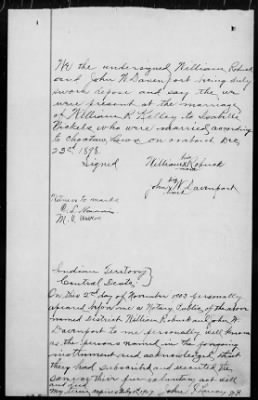 We the undersigned William Robuck
and John W Davenport being duly
sworn depose and say the we
were present at the marriage
of William K Kelley to
who were married according
to Choctaw Laws on or about Dec
23rd 1898.
Signed
William Robuck
his mark
John W Davenport
his mark
Witness to marks
M. V.
Indian Territory
Central District
On this 2nd day of November 1903 personally
appeared before me a Notary Public of the above
named District William Robuck and John W
Davenport to me personally well known
as the persons named in the foregoing
instrument and acknowledged that
they had subscribed and executed the
same as their free voluntary act will
and
my